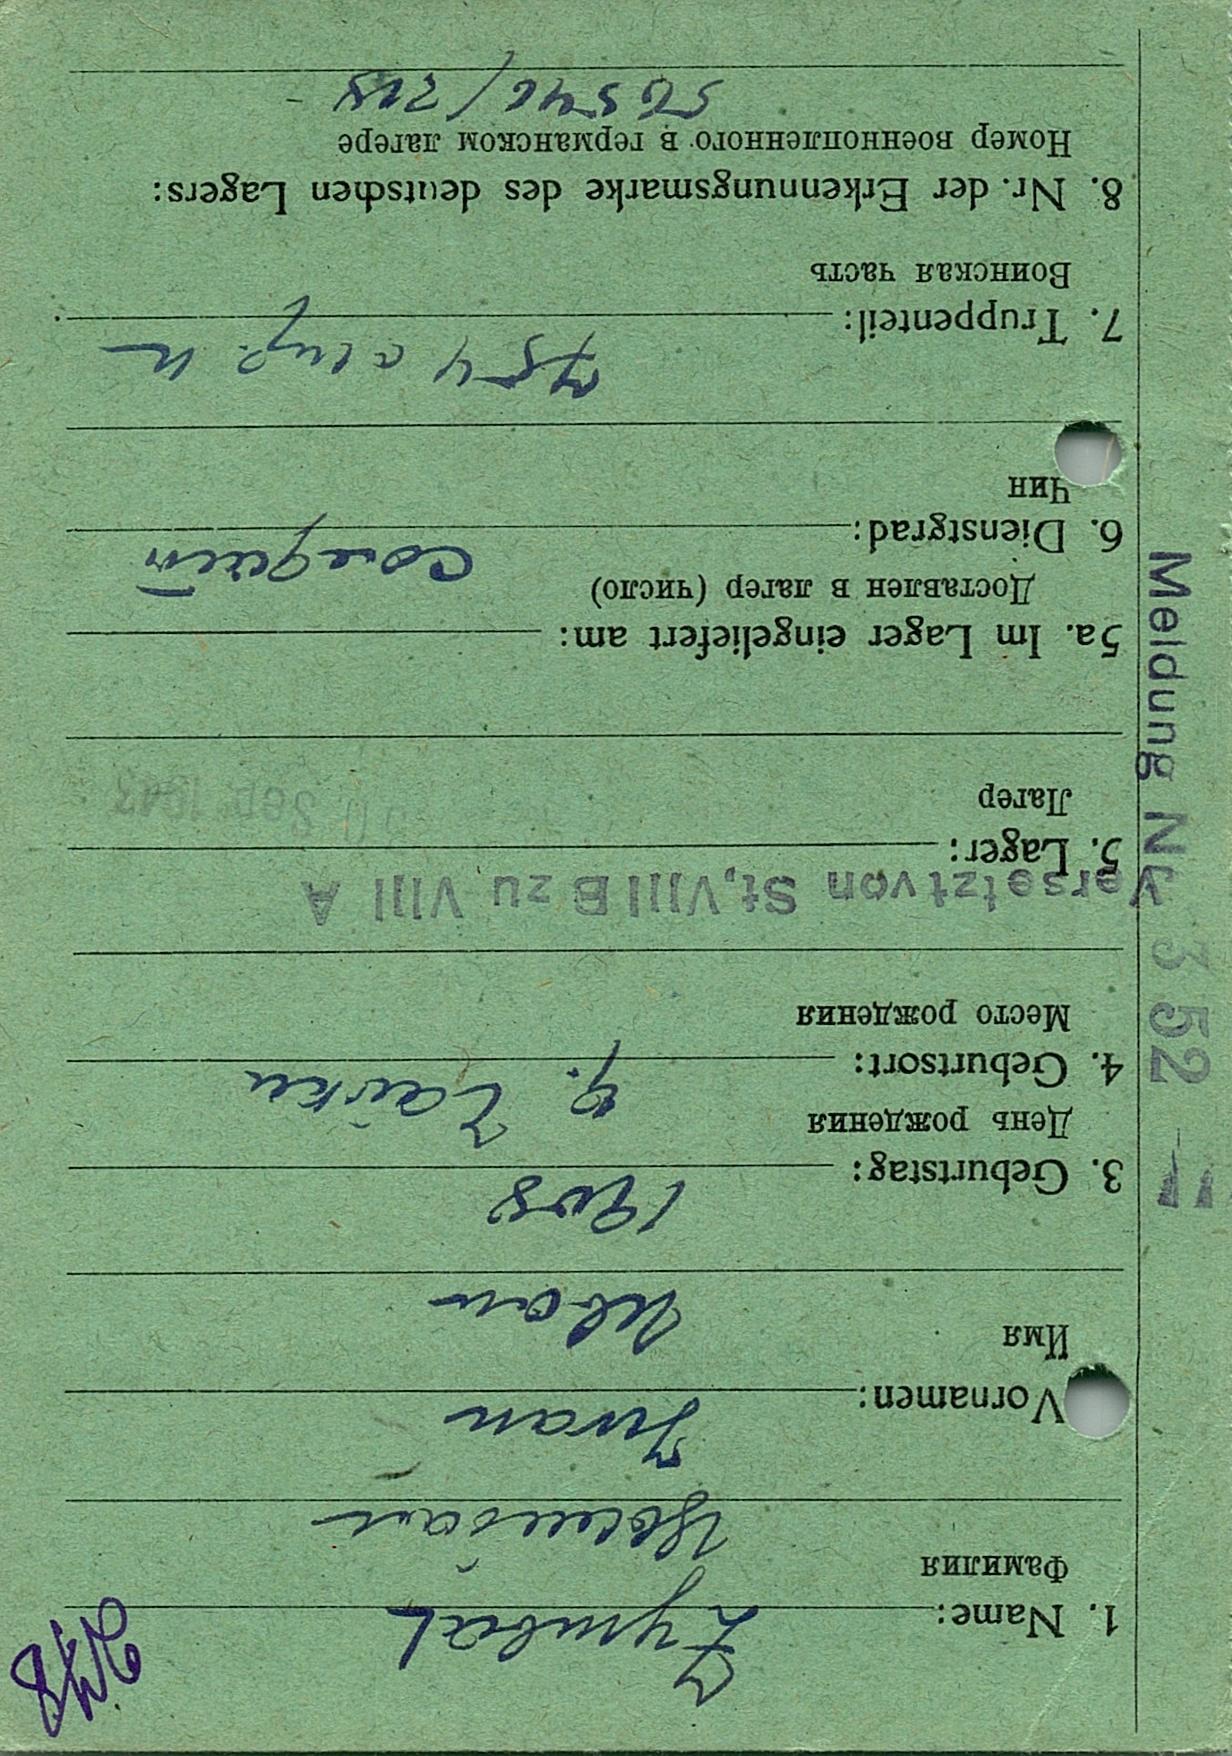 248
1. Name: Zymbal
Фамилия
Цымбал
Vornamen: Iwan
Имя
Иван
3. Geburtstag: 1908
День рождения
4. Geburtsort:
Место рождения
Versetzt von St, VIII B zu VIII A
5. Lager:
Лагер
20 Sep. 1943
5a. Im Lager eingeliefert am:
Доставлен в лагер (число)
6. Dienstgrad: солдат
Чин
7. Truppenteil: 754 стр. п
Воинская часть
8. Nr. der Erkennungsmarke des deutschen Lagers:
Номер военнопленного в германском лагере
Meldung Nr. 352